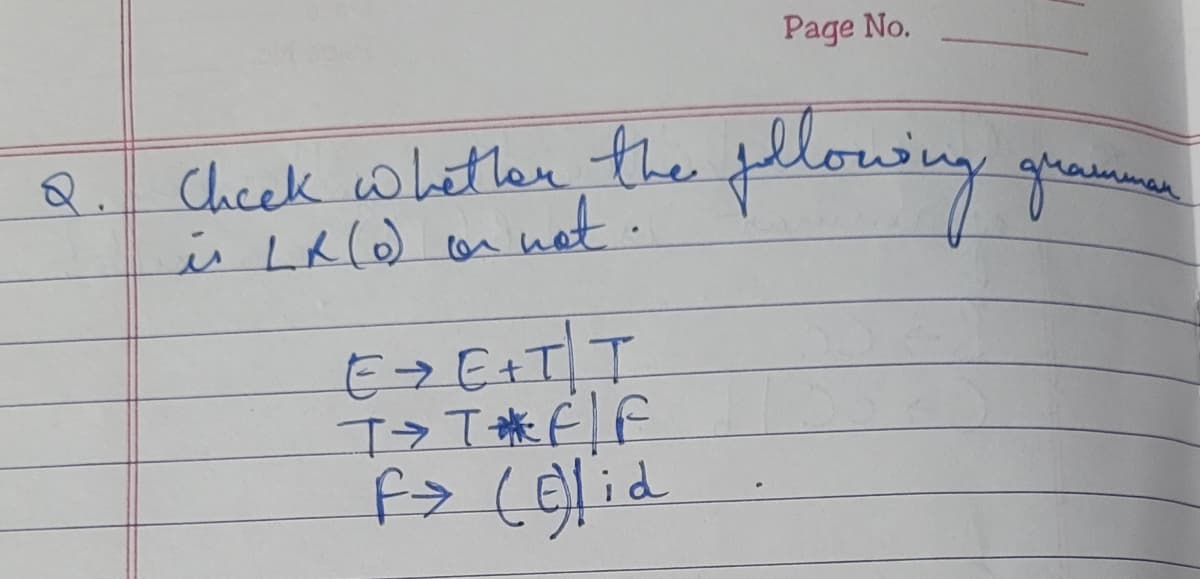 Page No.
Q. Check whether the following grammar
is LR(0) or not.
E → E+T | T
T → T * F | F
F → (E) | id